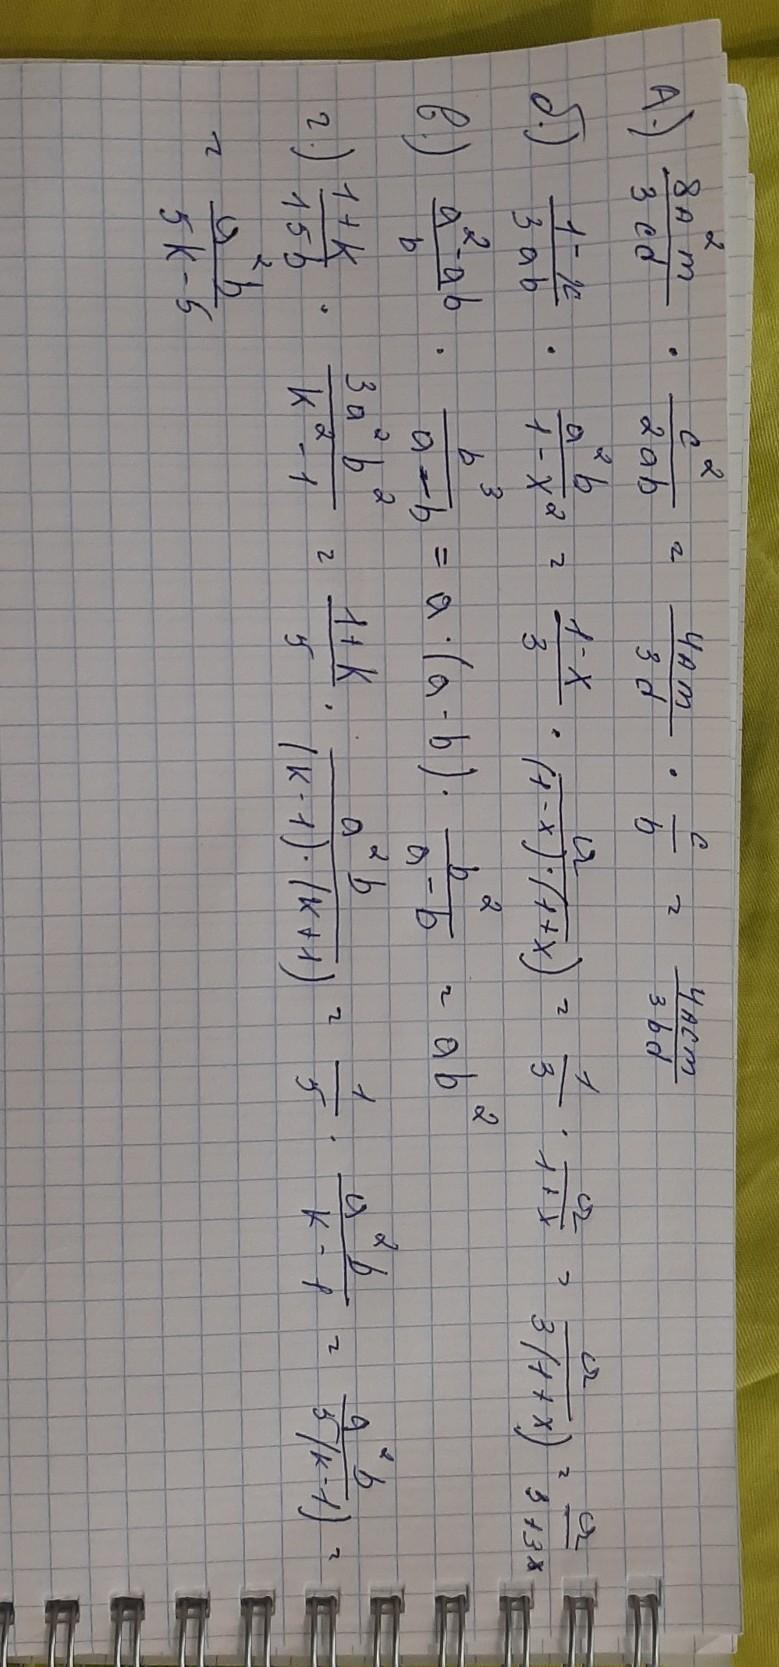 А.) 8a²m/3cd · c²/2ab = 4am/3d · c/b = 4acm/3bd
б.) 1-x/3ab · a²b/1-x² = 1-x/3 · a/(1-x)·(1+x) = 1/3 · a/1+x = a/3(1+x) = a/3+3x
в.) a²-ab/b · b³/a-b = a·(a-b) · b²/a-b = ab²
г.) 1+k/15b · 3a²b²/k²-1 = 1+k/5 · a²b/(k-1)·(k+1) = 1/5 · a²b/k-1 = a²b/5(k-1) =
= a²b/5k-5